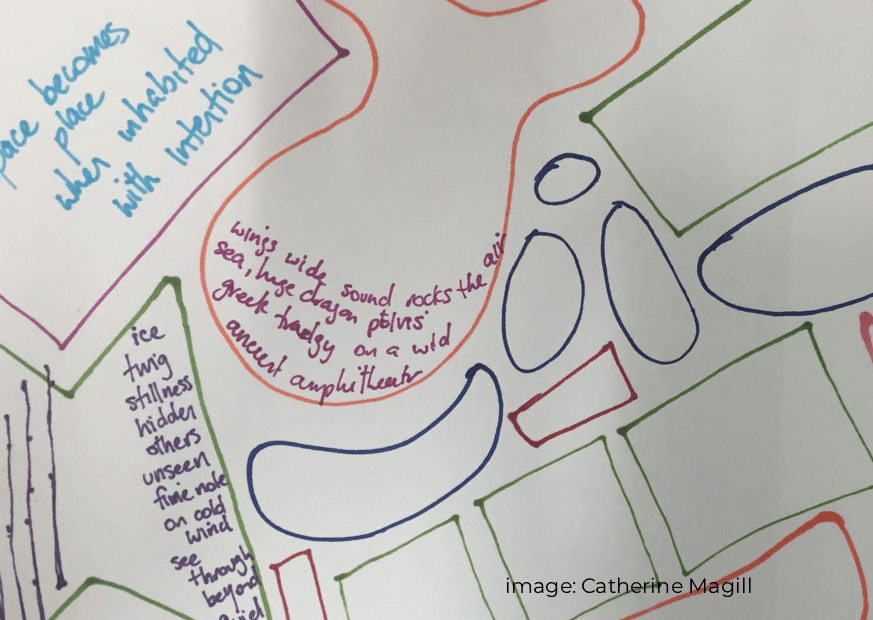 becomes
place
when inhabited
with intention
wings wide sound rocks the air
sea, huge dragon
greek on a wild
ancient amphitheatr
ice
twig
stillness
hidden
others
unseen
fine note
on cold
wind
see
through
beyond
image: Catherine Magill